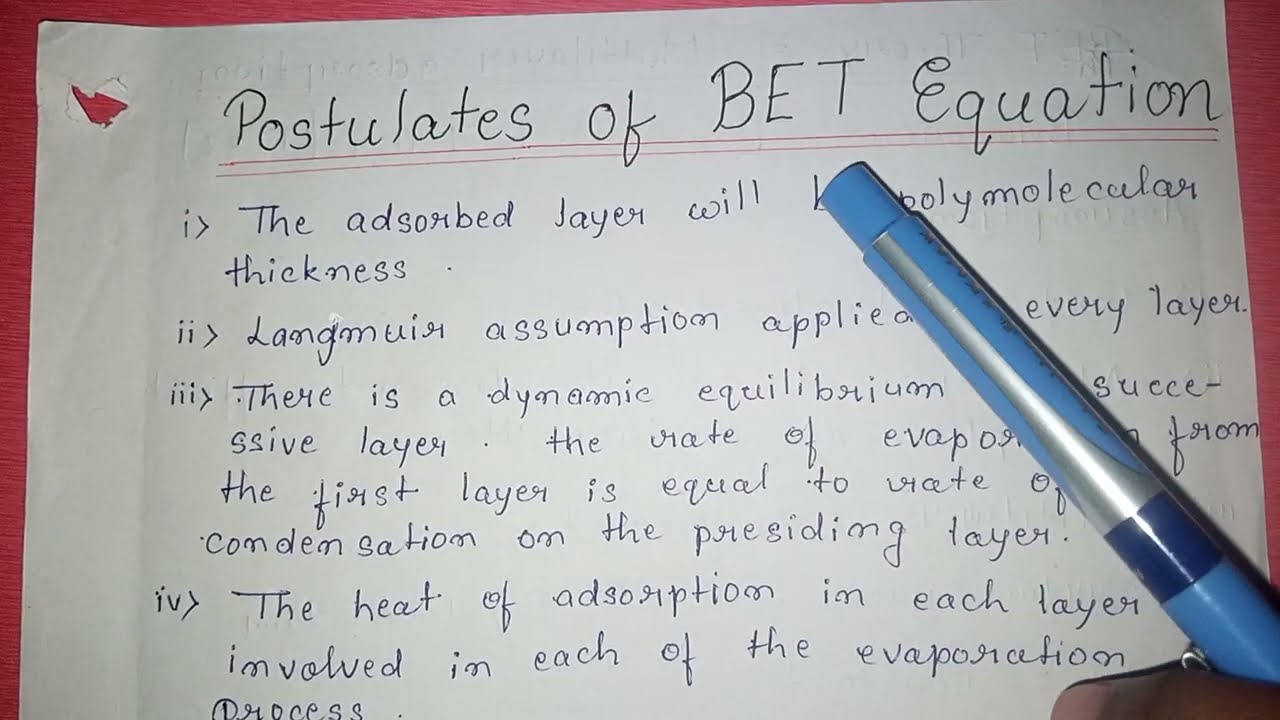 Postulates of BET Equation
i> The adsorbed layer will polymolecular
thickness.
ii> Langmuir assumption applied every layer.
iii> There is a dynamic equilibrium succe-
ssive layer. the rate of from
the first layer is equal to rate of
condensation on the presiding layer.
iv> The heat of adsorption in each layer
involved in each of the evaporation
process.